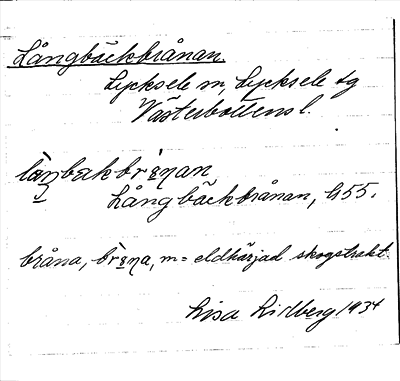 Långbäckbrånan.
Lycksele sn, Lycksele tg
Västerbottens l.
Långbäckbrånan, h55.
bråna, m = eldhärjad skogstrakt.
Lisa Lidberg 1934